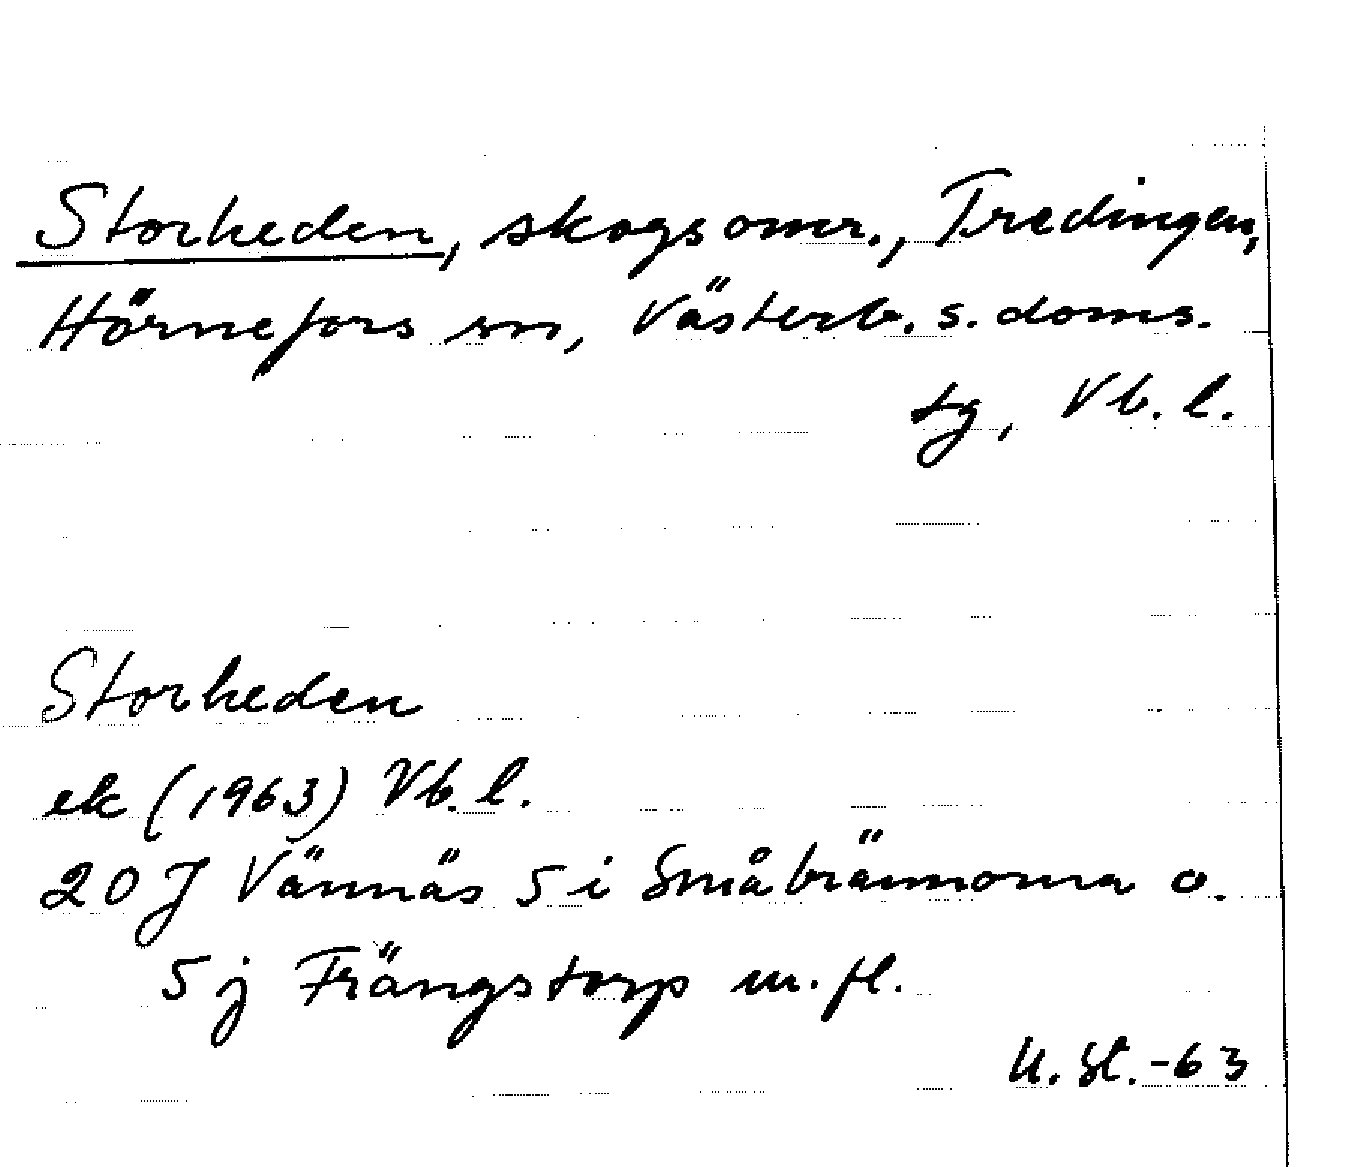 Storheden, skogsomr., Tredingen,
Hörnefors sn, Västerb. s. doms.
tg, Vb. l.
Storheden
ek (1963) Vb. l.
20 J Vännäs 5 i Småbrännorna o.
5 j Frängstorp m. fl.
U. St. -63